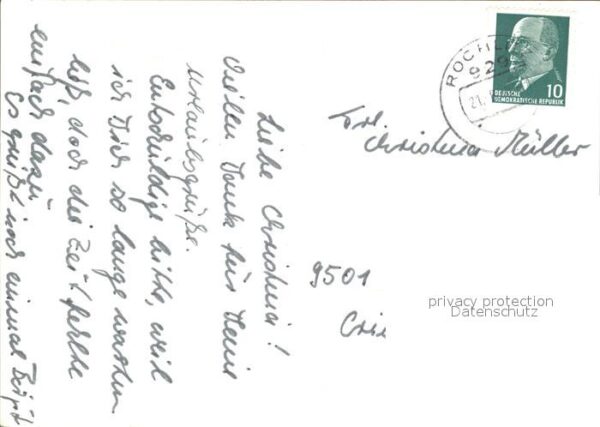 Liebe Christina!
Vielen Dank für Deine
Urlaubsgrüße.
Entschuldige bitte, weil
ich Dich so lange warten
ließ, doch die Zeit fehlte
einfach dazu.
Es grüßt noch einmal Birgit
ROCHL
929
21.
DEUTSCHE
DEMOKRATISCHE REPUBLIK
10
Frl.
Christina Müller
9501
Cri
privacy protection
Datenschutz